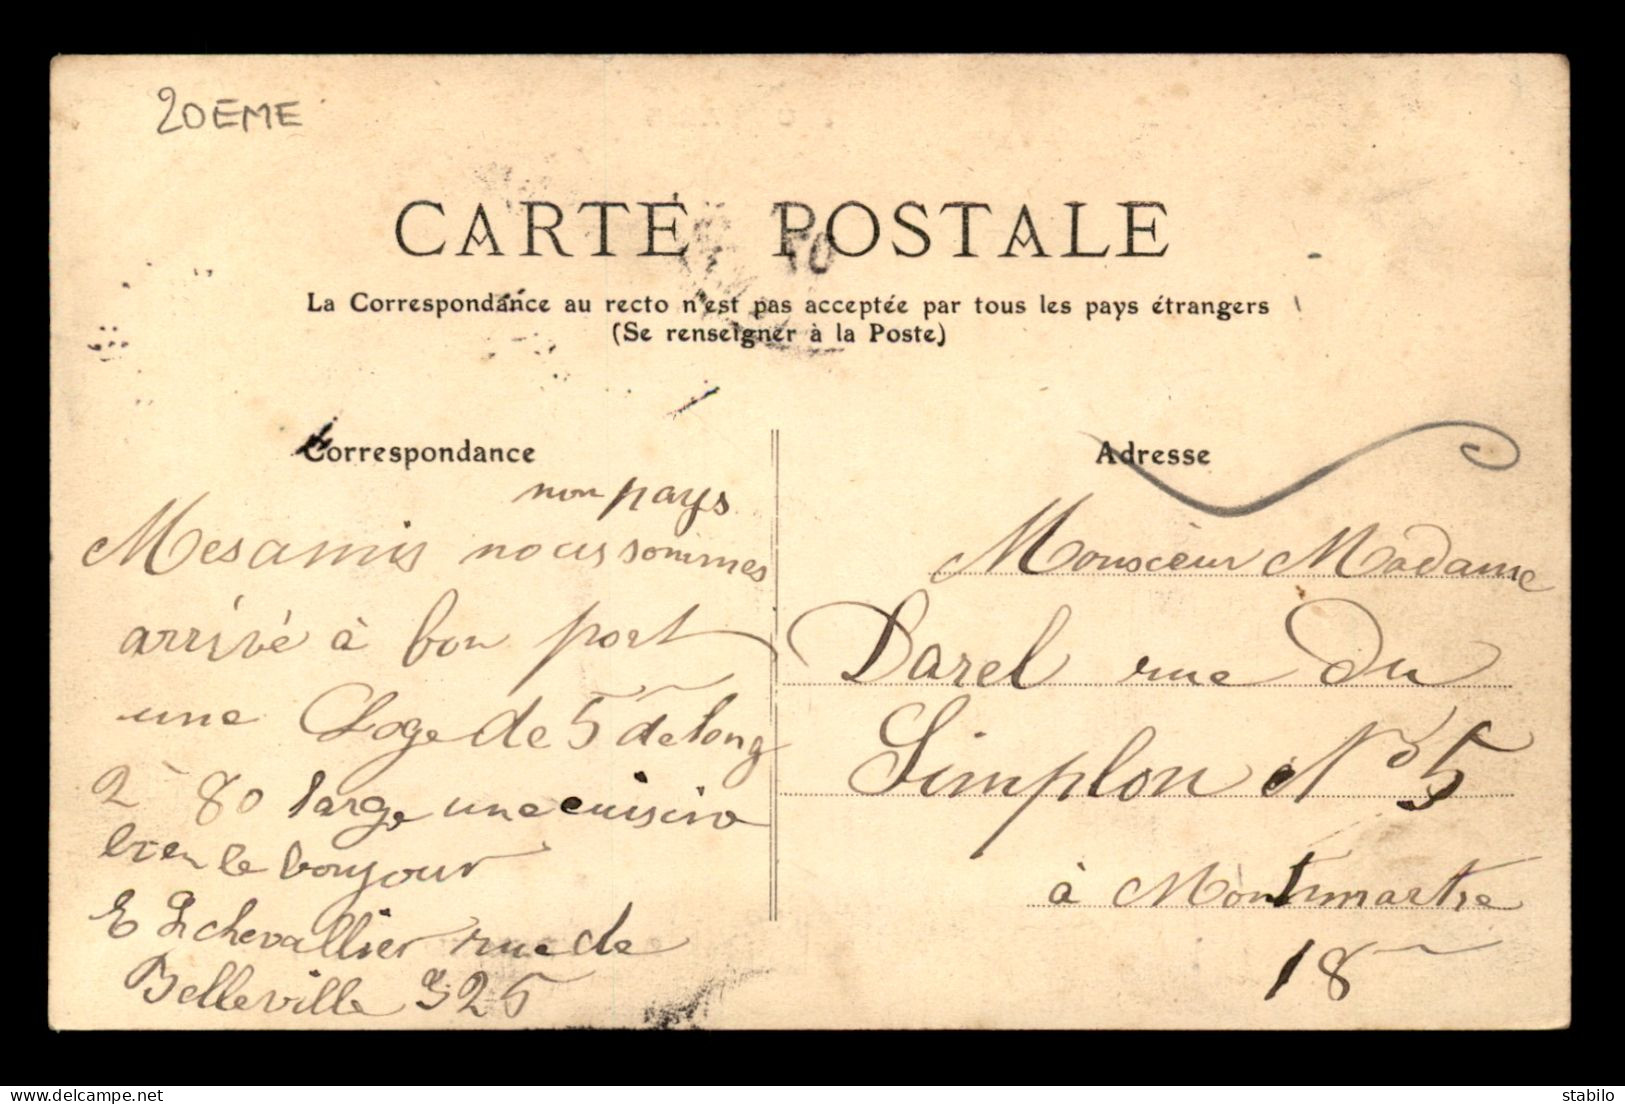 20EME
CARTE POSTALE
La Correspondance au recto n'est pas acceptée par tous les pays étrangers
(Se renseigner à la Poste)
Correspondance
pays
Mes amis nous sommes
arrivé à bon port
une Loge de 5 de long
2 80 large une cuisine
bien le bonjour
E chevallier rue de
Belleville 325
Adresse
Monsieur Madame
Darel rue du
Simplon No 5
à Montmartre
18
delcampe.net
stabilo